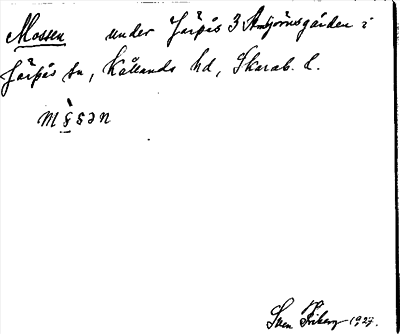 Mossen under Järpås 3 Ambjörnsgården i
Järpås sn, Kållands hd, Skarab. l.
Sven Friberg 1927.